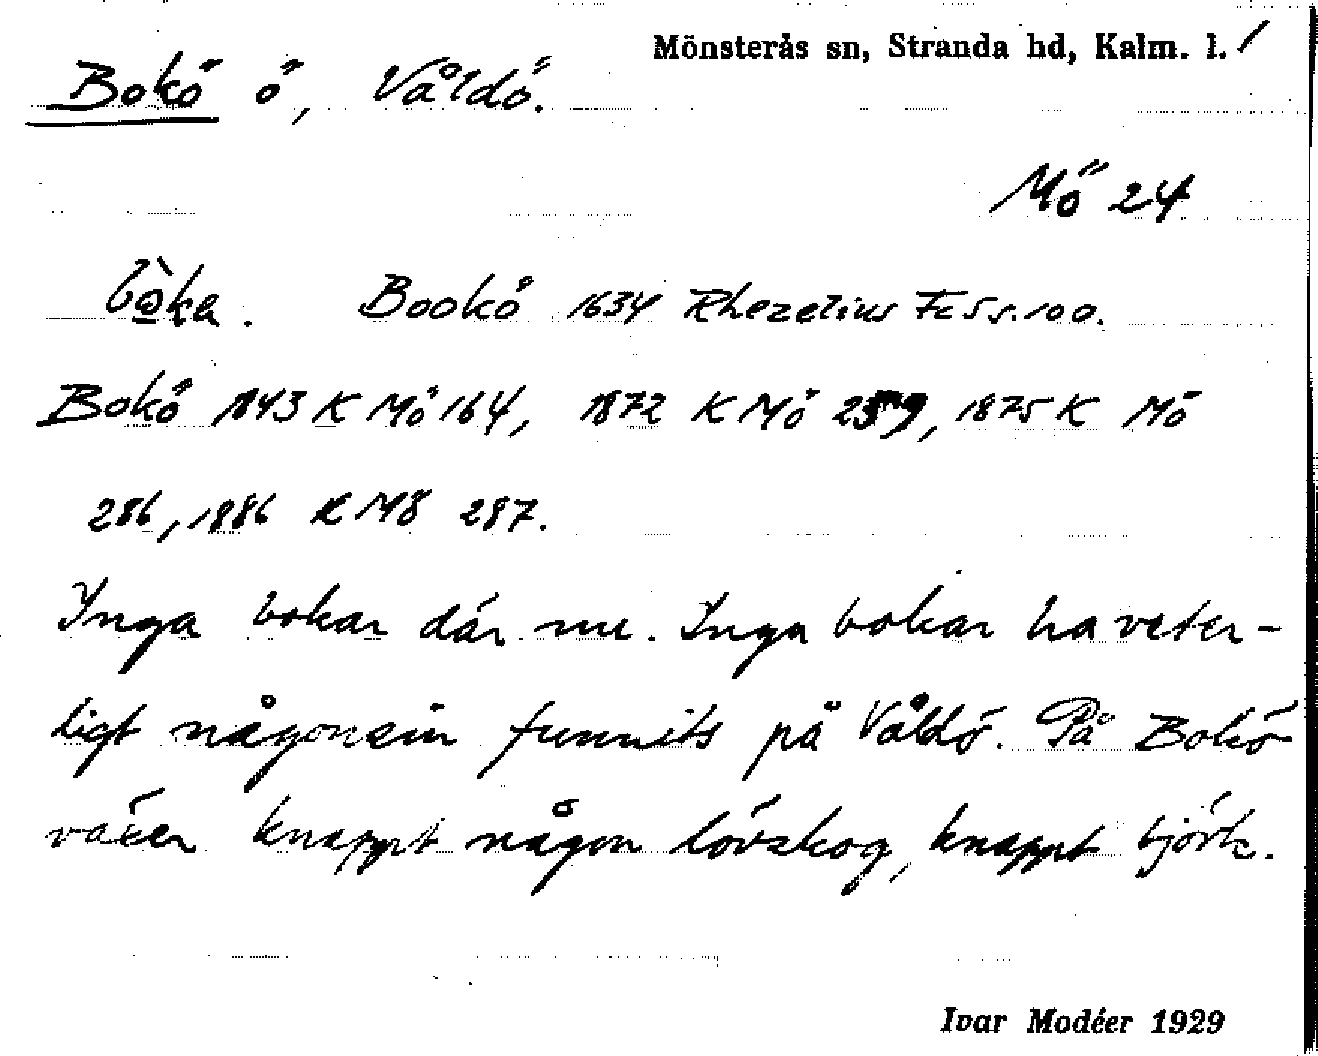 Mönsterås sn, Stranda hd, Kalm. l. /
Bokö ö, Våldö.
Mö 24
bò̱ka. Bookö 1634 Rhezelius Fc 5 s. 100.
Bokö 1843 K Mö 164, 1872 K Mö 259, 1875 K Mö
286, 1886 K Mö 287.
Inga bokar där nu. Inga bokar ha veter-
ligt någonsin funnits på Våldö. På Bokö
växer knappt någon lövskog, knappt björk.
Ivar Modéer 1929